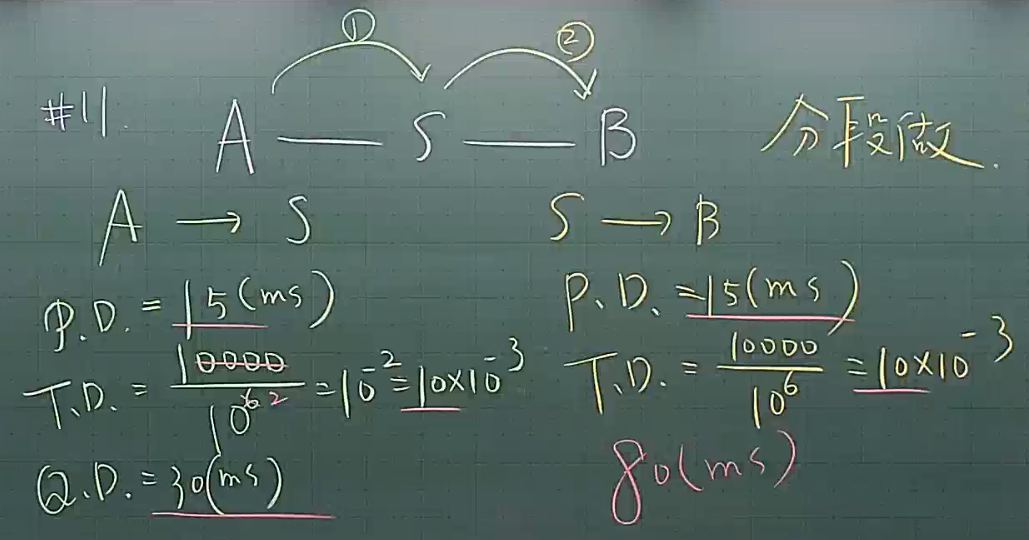 ① ②
#11. A — S — B 分段做.
A → S
P.D. = 15(ms)
T.D. = 10000/10^6 2 = 10^-2 = 10×10^-3
Q.D. = 30(ms)
S → B
P.D. = 15(ms)
T.D. = 10000/10^6 = 10×10^-3
80(ms)